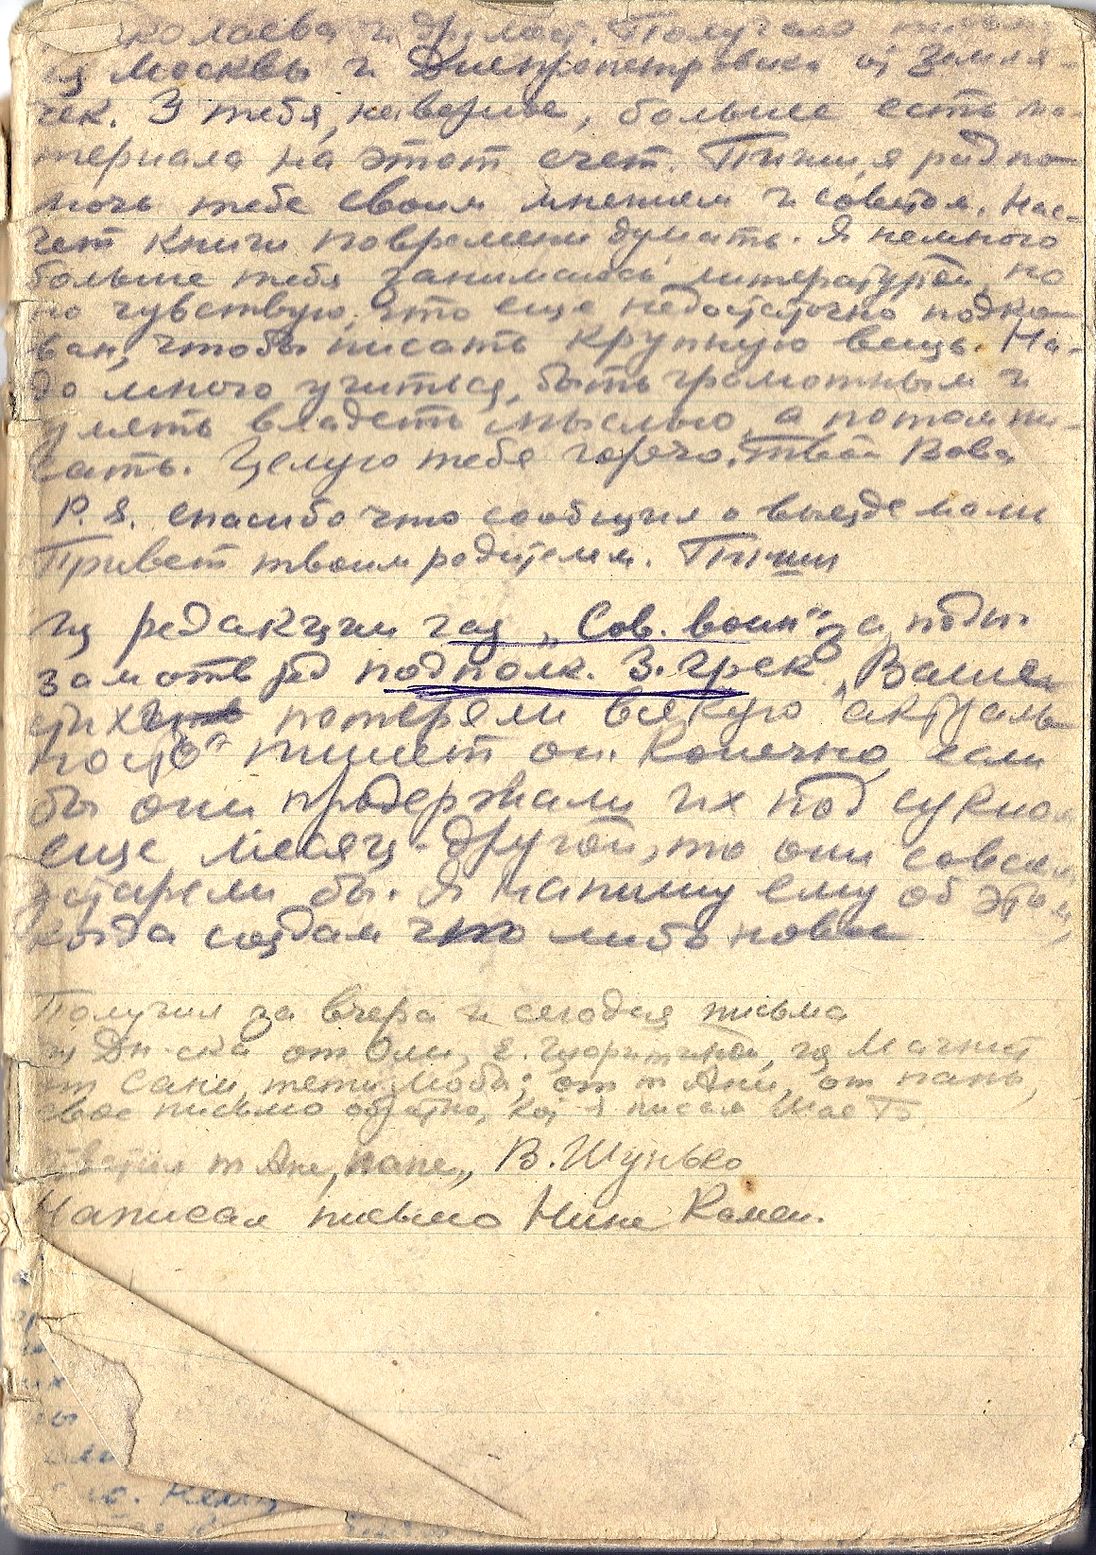 колаева и другой. Получаю письма
из Москвы и Днепропетровска от земля-
чек. У тебя, наверное, больше есть ма-
териала на этот счет. Пиши, я рад по-
мочь тебе своим мнением и советом. Нас-
чет книги повремени думать. Я немного
больше тебя занимаюсь литературой, но
но чувствую, что еще недостаточно подко-
ван, чтобы писать крупную вещь. На-
до много учиться, быть грамотным и
уметь владеть мыслью, а потом пи-
сать. Целую тебя горячо. Твой Вова.
P.S. Спасибо что сообщил о выезде мамы
Привет твоим родителям. Пиши
Из редакции газ „Сов. воин" за подп.
зам отв ред подполк. З. Грек „Ваши
стихи потеряли всякую актуаль
ность" пишет он. Конечно, если
бы они продержали их под сукном
еще месяц-другой, то они совсем
устарели бы. Я напишу ему об этом,
когда создам что либо новое
Получил за вчера и сегодня письма
из Дн-ска от Оли, Е. из Магнит
от Сани, тети Любы; от т Ани, от папы,
свое письмо обратно, кот я писал
Ответил т Ане, папе, В. Шунько
Написал письмо Нине Камен.